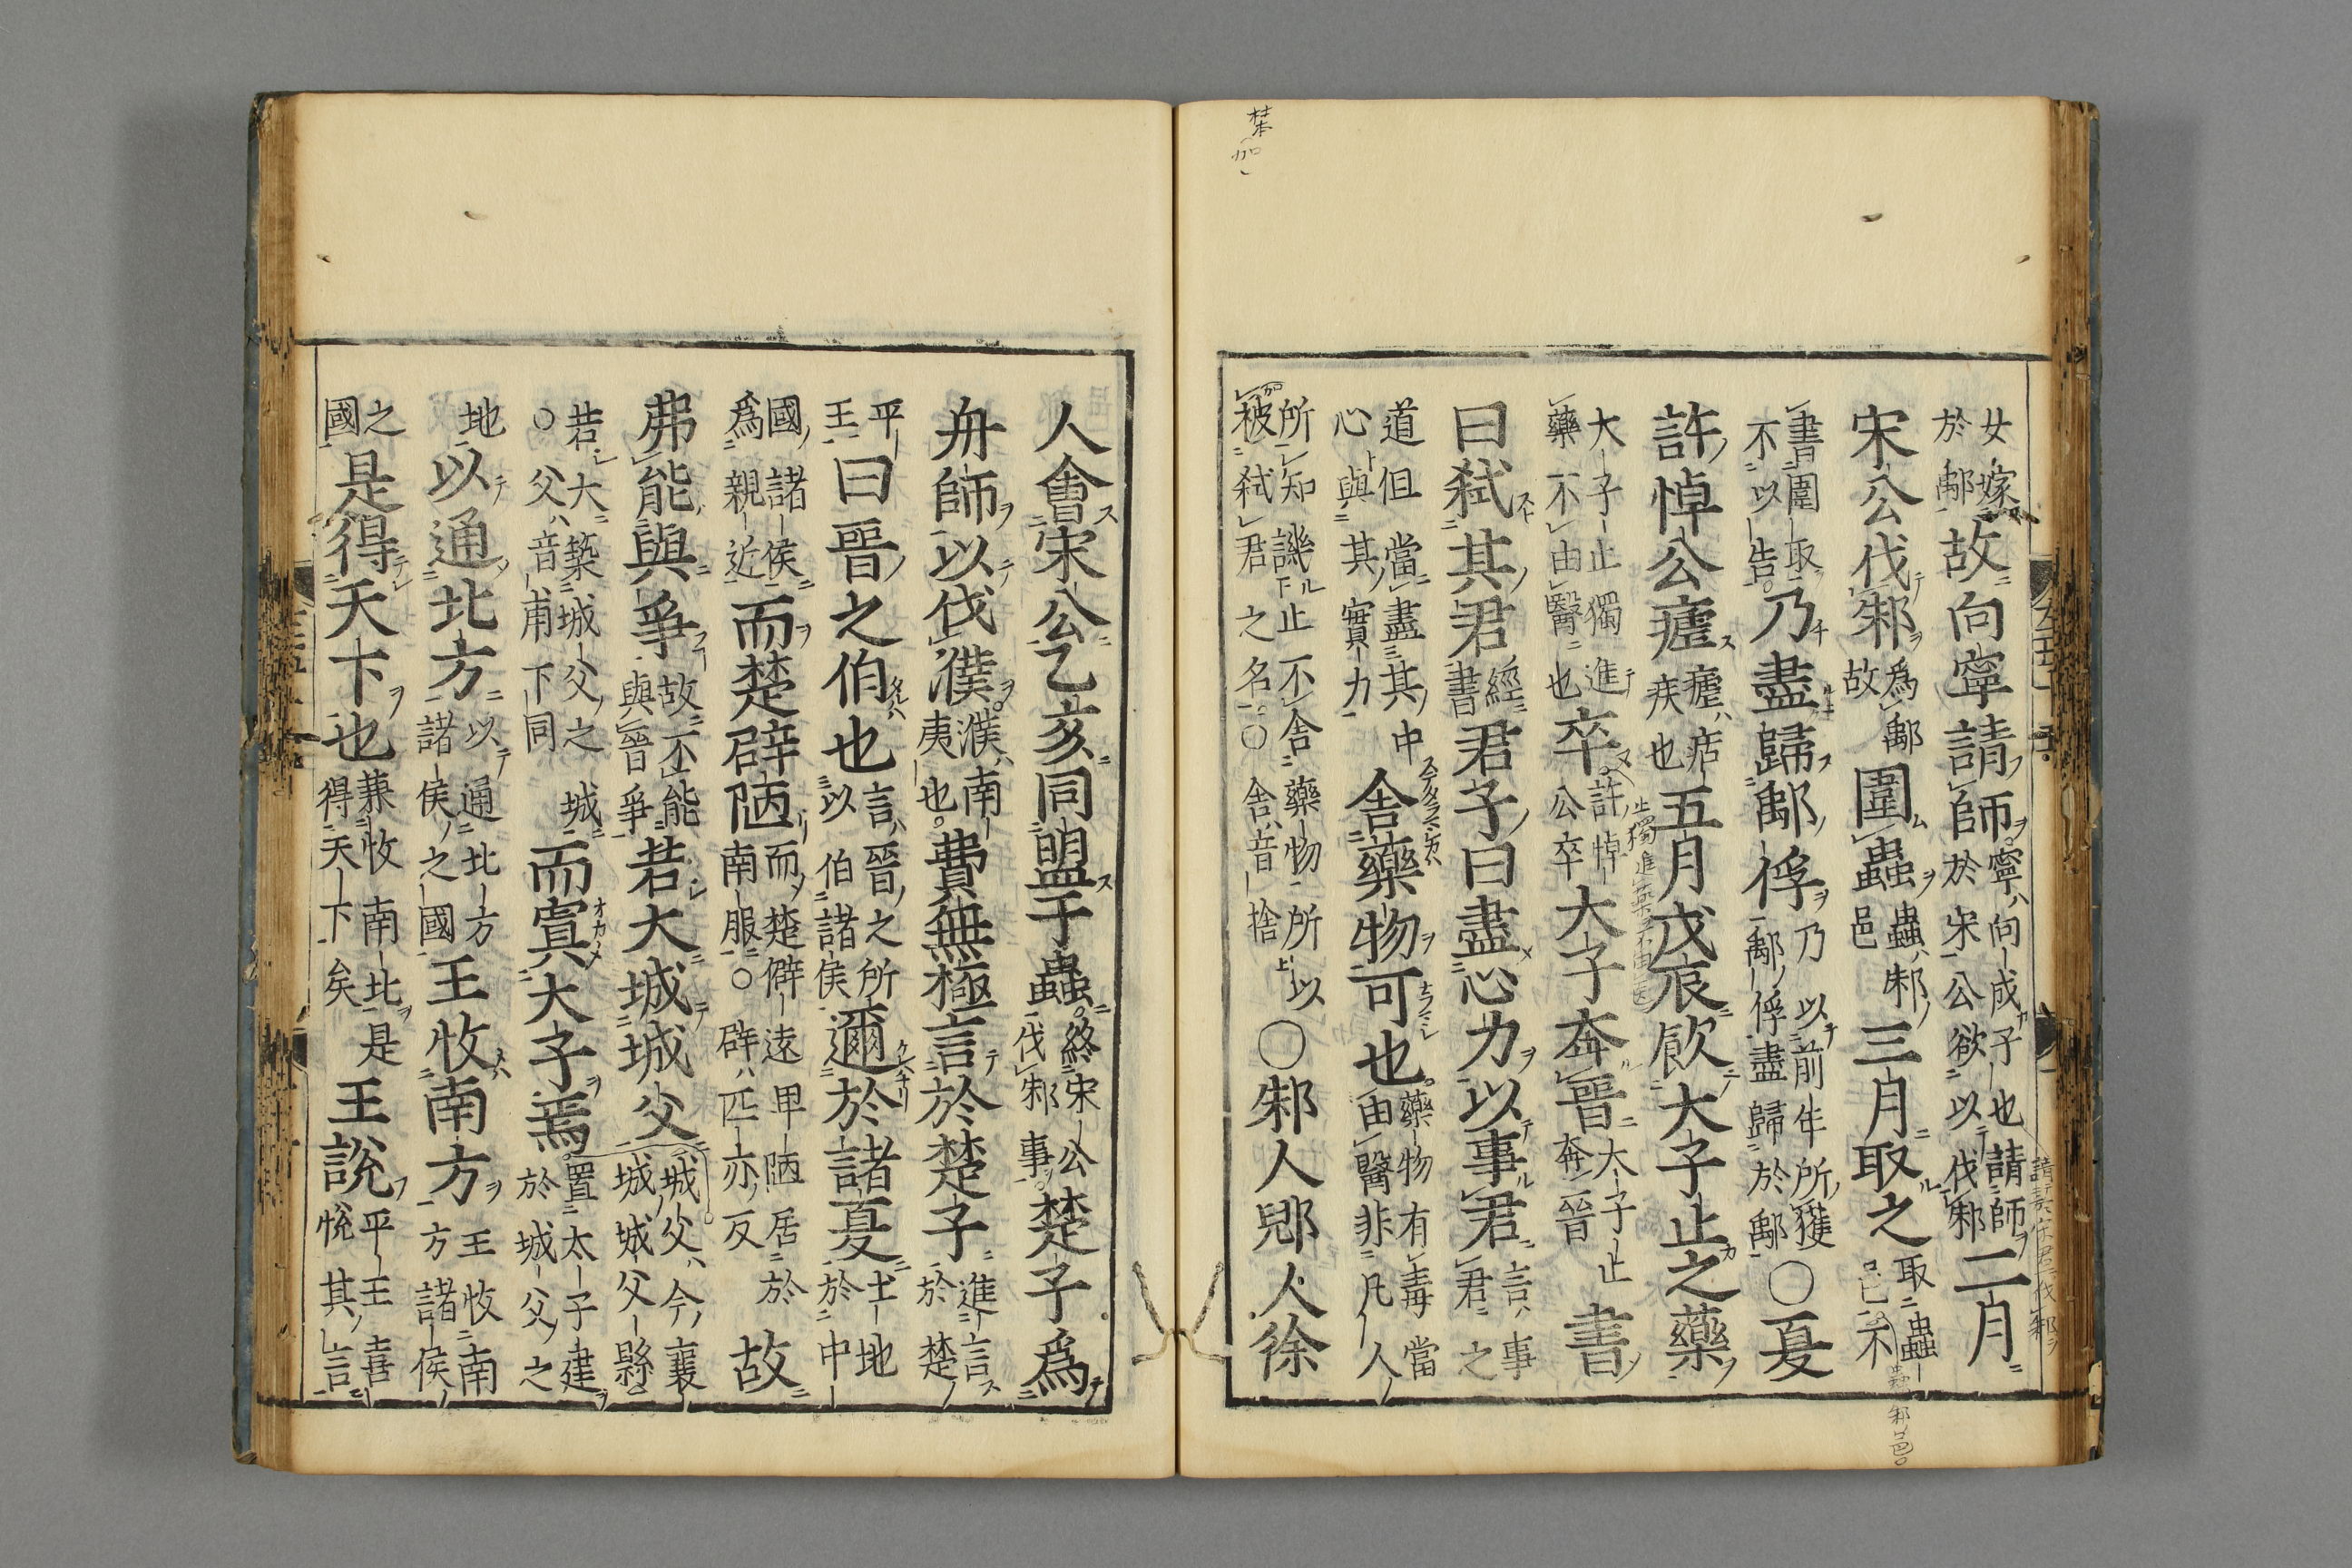 女嫁於鄅故向寧請師寧向戌子也請師於宋公欲以伐邾二月
宋公伐邾爲鄅故圍蟲蟲邾邑三月取之取蟲不
書圍取不以告乃盡歸鄅俘乃以前年所獲鄅俘盡歸於鄅○夏
許悼公瘧瘧痁疾也五月戊辰飮大子止之藥
大子止獨進藥不由醫也卒許悼公卒大子奔晉大子止奔晉書
曰弑其君經書君子曰盡心力以事君言事君之
道但當盡其中心與其實力舍藥物可也藥物有毒當由醫非凡人
所知譏止不舍藥物所以被弑君之名○舍音捨○邾人郳人徐
人會宋公乙亥同盟于蟲終宋公伐邾事楚子爲
舟師以伐濮濮南夷也費無極言於楚子進言於楚
平王曰晉之伯也言晉之所以伯諸侯邇於諸夏土地於中
國諸侯爲親近而楚辟陋而楚僻遠卑陋居於南服○辟匹亦反故
弗能與爭故不能與晉爭若大城城父城父今襄城城父縣
若大築城父之城○父音甫下同而寘大子焉置太子建於城父之
地以通北方以通北方諸侯之國王收南方王收南方諸侯
之國是得天下也兼收南北是得天下矣王說平王喜悅其言